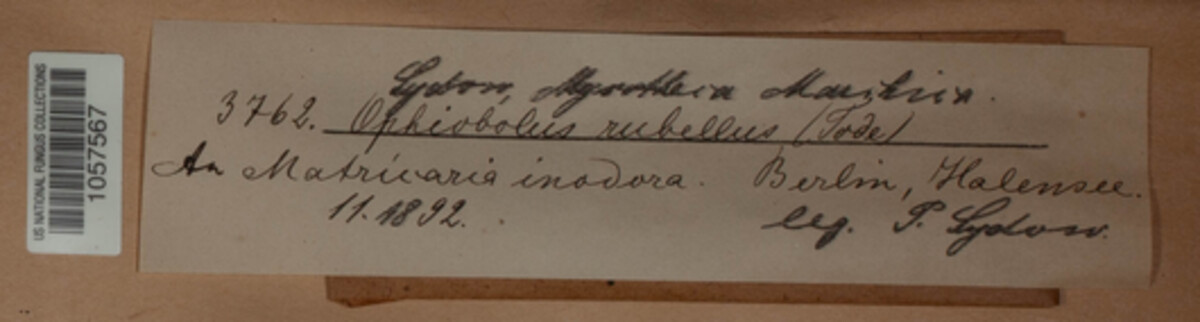 US NATIONAL FUNGUS COLLECTIONS
1057567
Sydow, Mycotheca Marchica.
3762. Ophiobolus rubellus (Tode)
An Matricaria inodora. Berlin, Halensee.
11.1892. leg. P. Sydow.